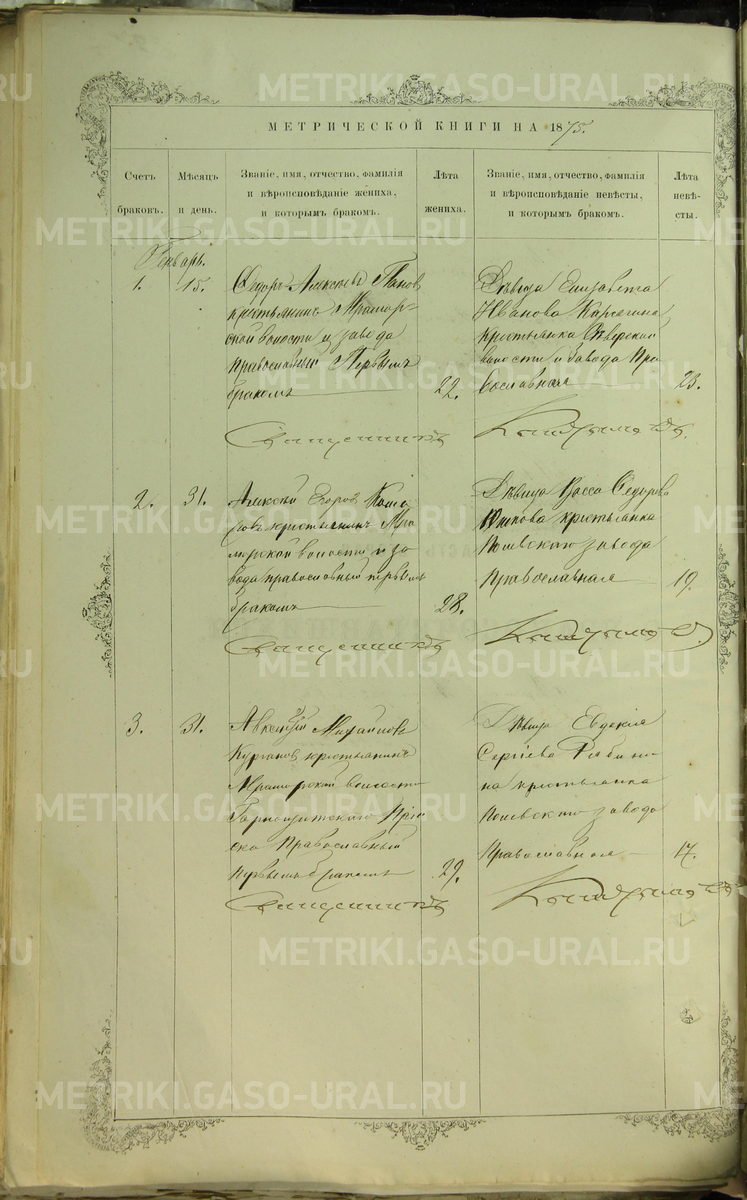 МЕТРИЧЕСКОЙ КНИГИ НА 1875.
Счетъ браковъ.
Мѣсяцъ и день.
Званіе, имя, отчество, фамилія
и вѣроисповѣданіе жениха,
и которымъ бракомъ.
Лѣта
жениха.
Званіе, имя, отчество, фамилія
и вѣроисповѣданіе невѣсты,
и которымъ бракомъ.
Лѣта
невѣ-
сты.
Генварь.
1. 15.
Федоръ Алексѣевъ Пановъ
крестьянинъ Мрамор-
ской волости и завода
Православный Первымъ
бракомъ 22.
Дѣвица Елизавета
Иванова
крестьянка Сысерской
волости и завода Пра
вославная 23.
Священникъ
2. 31.
Алексѣй Егоровъ
крестьянинъ Мра
морской волости и за
вода православный первымъ
бракомъ 28.
Дѣвица Васса Федорова
крестьянка
Полевскаго завода
Православная 19.
Священникъ
3. 31.
Авксентій Михайловъ
Кургановъ крестьянинъ
Мраморской волости
Горнощитскаго Прі
ска Православный
первымъ бракомъ 29.
Дѣвица Евдокія
Сергіева Рябини
на крестьянка
Полевскаго завода
Православная 17.
Священникъ
METRIKI.GASO-URAL.RU